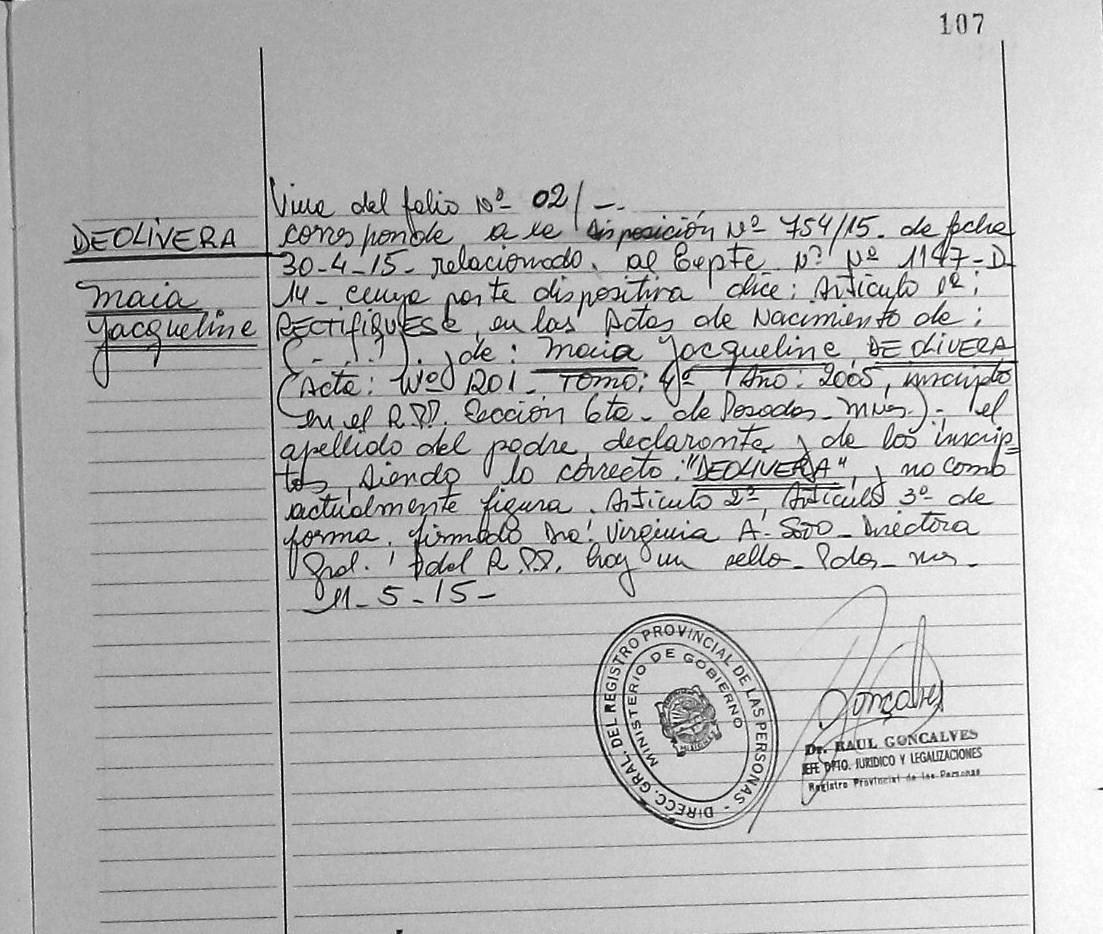 107
Viene del folio Nº 02/-.
DEOLIVERA
corresponde a la disposición Nº 754/15. de fecha
30-4-15- relacionado, al Expte Nº 1147-D
Maia
14- cuya parte dispositiva dice: Artículo 1º:
Jacqueline
RECTIFIQUESE, en las Actas de Nacimiento de:
(- . . .). y de: Maia Jacqueline DE OLIVERA
(Acta: Nº 1201- TOMO: 4º Año: 2005, inscripto
en el R.P.P. Sección 6ta- de Posadas- Mnes.)- el
apellido del padre, declarante y de los inscrip-
tos, siendo lo correcto: "DEOLIVERA", y no como
actualmente figura. Artículo 2º, Artículo 3º de
forma. firmado Dra. Virginia A. Soto- Directora
Gral. del R.P.P. hay un sello- Pdas- Mnes-
11-5-15-
DIRECC. GRAL. DEL REGISTRO PROVINCIAL DE LAS PERSONAS -
MINISTERIO DE GOBIERNO
MISIONES
Goncalves
Dr. RAUL GONCALVES
JEFE DPTO. JURIDICO Y LEGALIZACIONES
Registro Provincial de las Personas